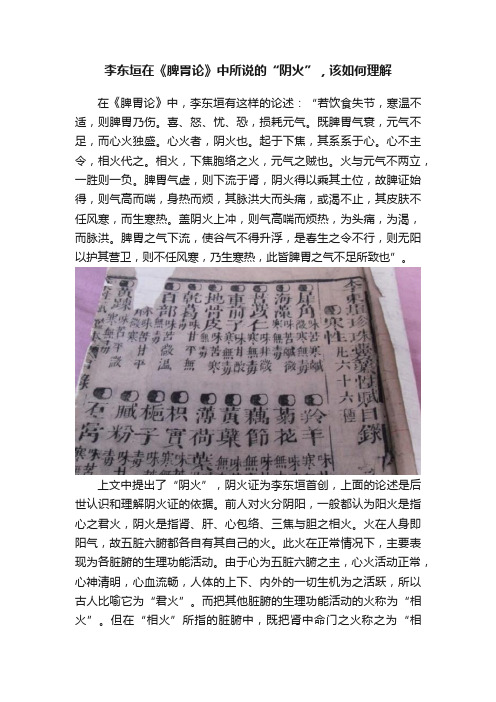 李东垣在《脾胃论》中所说的“阴火”，该如何理解
在《脾胃论》中，李东垣有这样的论述：“若饮食失节，寒温不
适，则脾胃乃伤。喜、怒、忧、恐，损耗元气。既脾胃气衰，元气不
足，而心火独盛。心火者，阴火也。起于下焦，其系系于心。心不主
令，相火代之。相火，下焦胞络之火，元气之贼也。火与元气不两立，
一胜则一负。脾胃气虚，则下流于肾，阴火得以乘其土位，故脾证始
得，则气高而喘，身热而烦，其脉洪大而头痛，或渴不止，其皮肤不
任风寒，而生寒热。盖阴火上冲，则气高喘而烦热，为头痛，为渴，
而脉洪。脾胃之气下流，使谷气不得升浮，是春生之令不行，则无阳
以护其营卫，则不任风寒，乃生寒热，此皆脾胃之气不足所致也”。
李東垣珍珠囊藥性賦目錄
寒性 凡六十六種
犀角
海藻
車前子
地骨皮
乾葛
百部
羚羊
菊花
藕節
薄荷葉
枳實
梔子
膩粉
石膏
上文中提出了“阴火”，阴火证为李东垣首创，上面的论述是后
世认识和理解阴火证的依据。前人对火分阴阳，一般都认为阳火是指
心之君火，阴火是指肾、肝、心包络、三焦与胆之相火。火在人身即
阳气，故五脏六腑都各自有其自己的火。此火在正常情况下，主要表
现为各脏腑的生理功能活动。由于心为五脏六腑之主，心火活动正常，
心神清明，心血流畅，人体的上下、内外的一切生机为之活跃，所以
古人比喻它为“君火”。而把其他脏腑的生理功能活动的火称为“相
火”。但在“相火”所指的脏腑中，既把肾中命门之火称之为“相